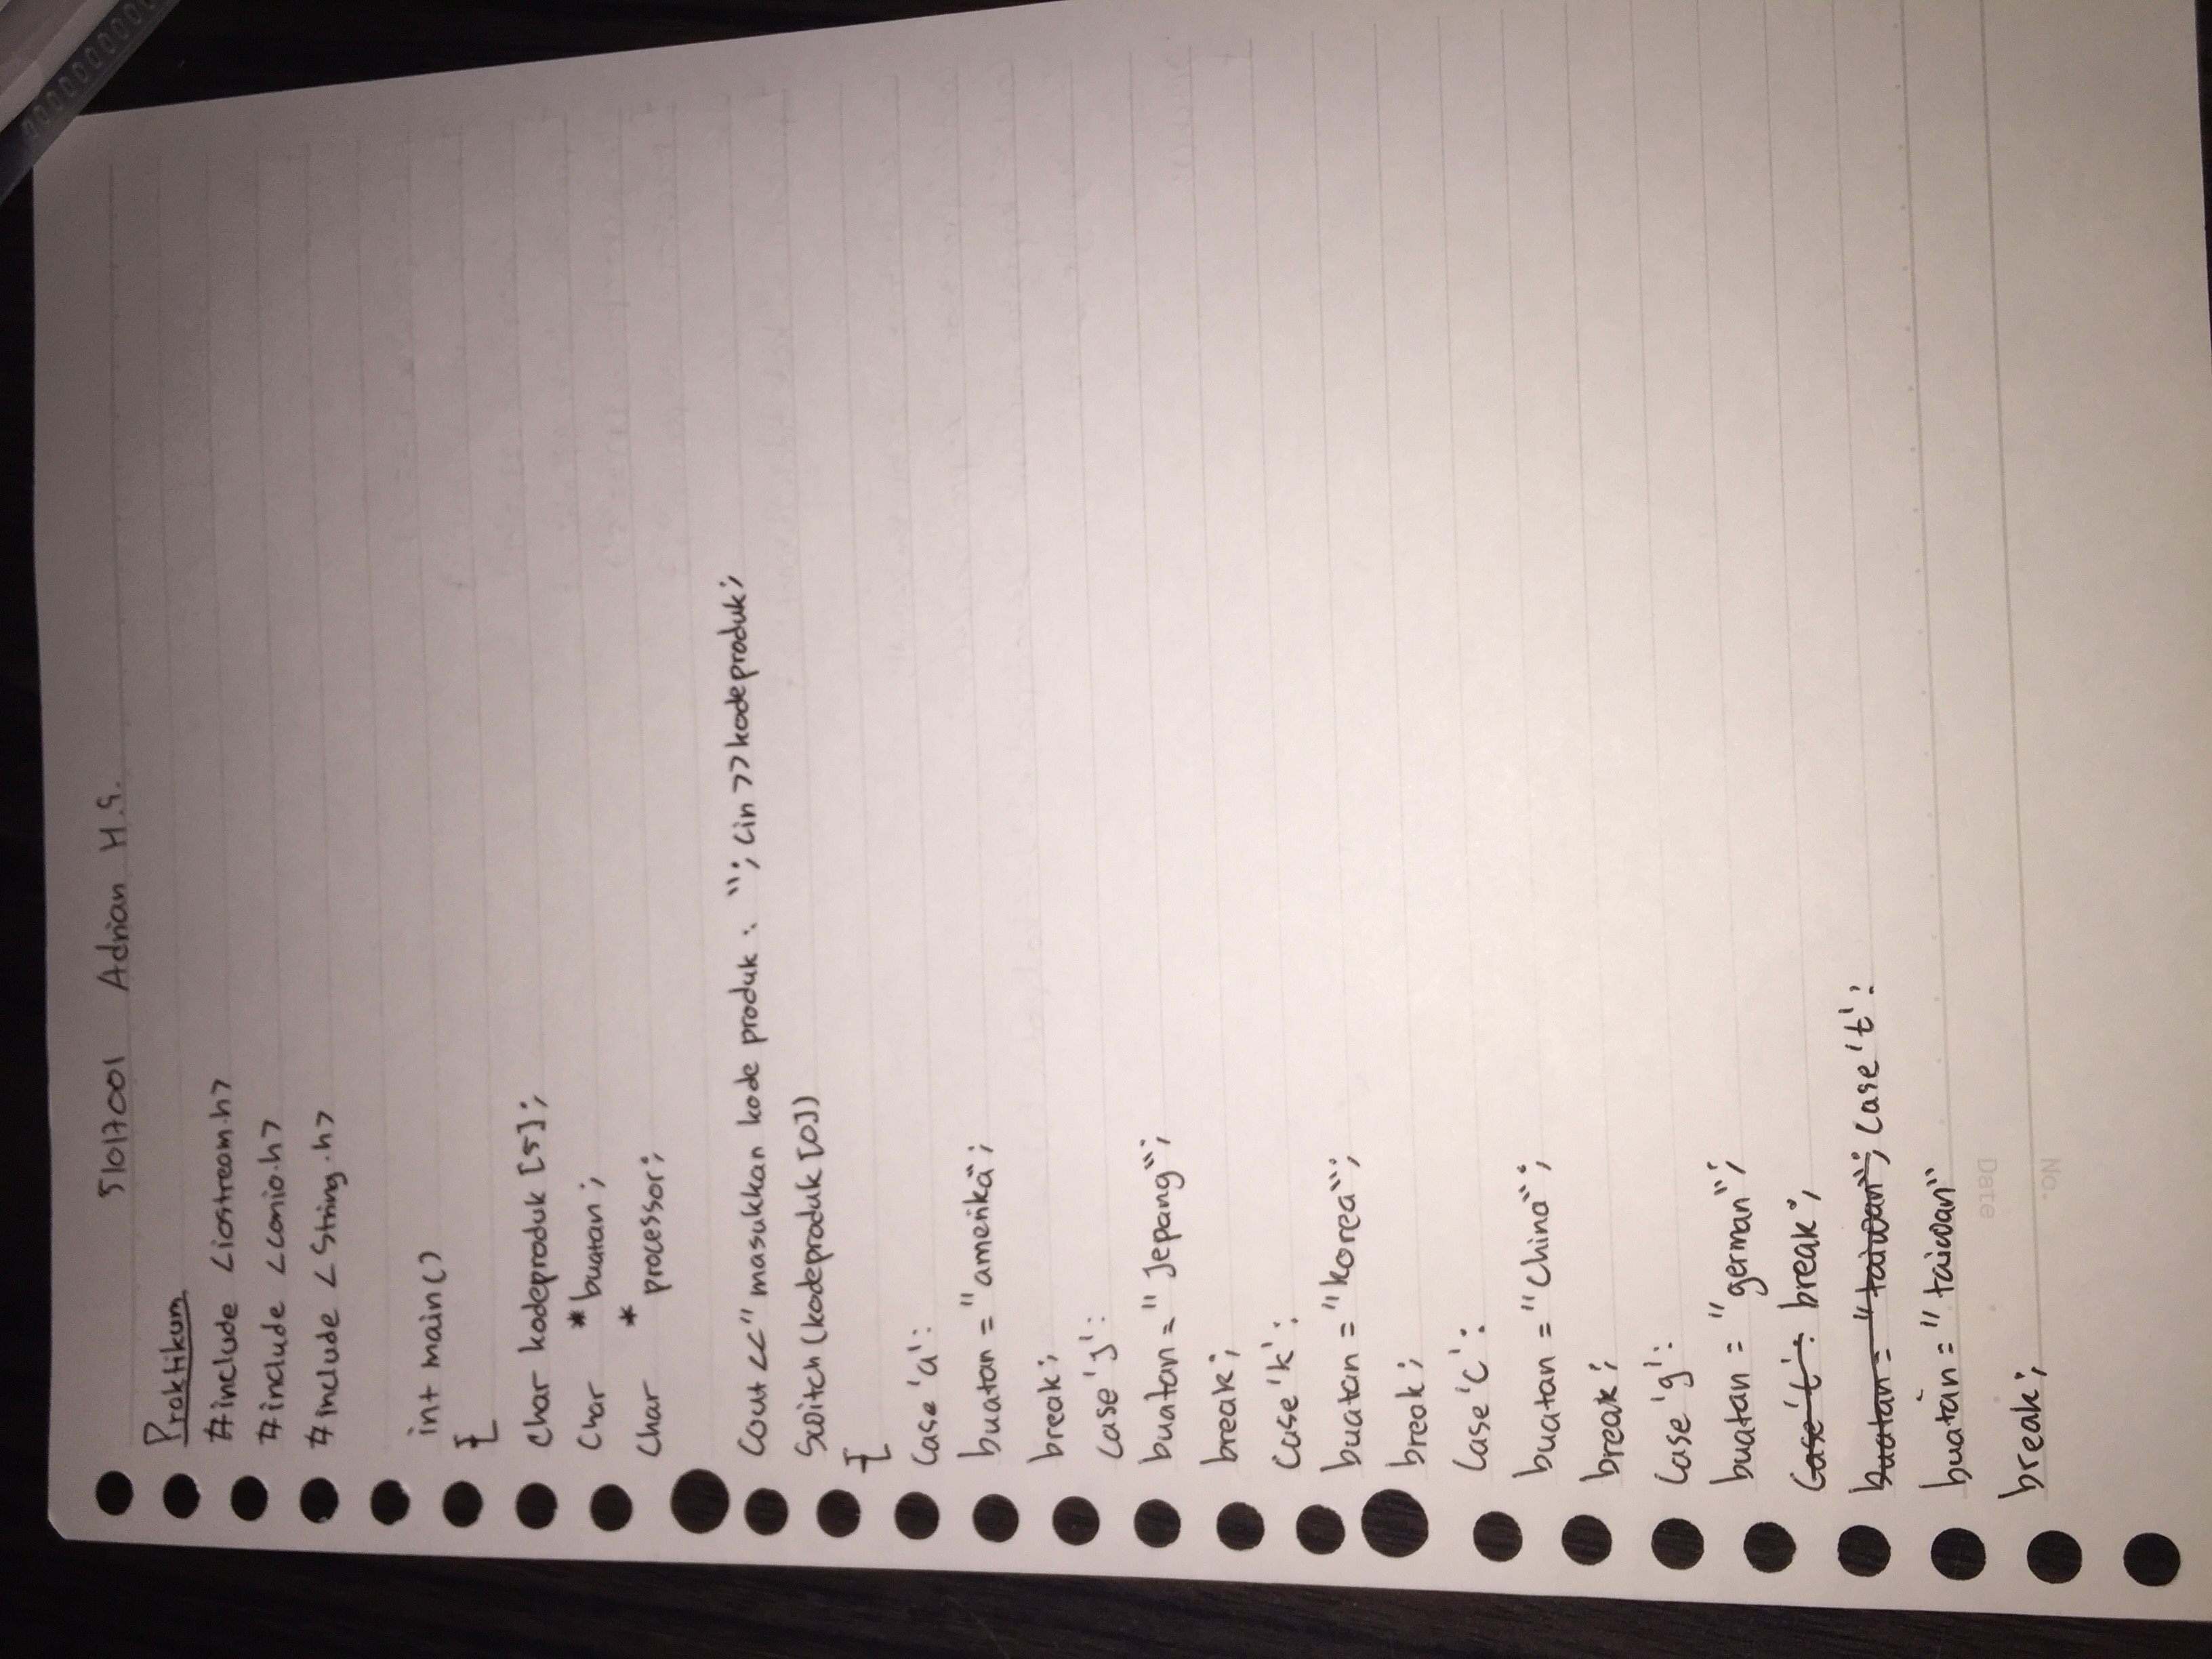 51017001 Adrian H.G.
Praktikum
#include <iostream.h>
#include <conio.h>
#include <String.h>
int main()
{
char kodeproduk [5];
Char *buatan;
Char *processor;
Cout <<"masukkan kode produk : "; Cin >>kodeproduk;
Switch (kodeproduk [0])
{
Case 'a':
buatan = "amerika";
break;
Case 'J':
buatan = "Jepang";
break;
Case 'k':
buatan = "korea";
break;
Case 'c':
buatan = "China";
break;
Case 'g':
buatan = "german";
Case 't': break;
buatan = "taiwan"; Case 't':
buatan = "taiwan"
break;
Date
No.